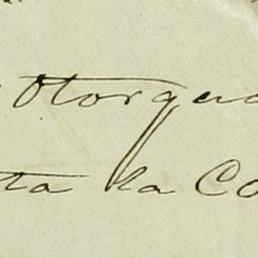 Otorque
ta la Co